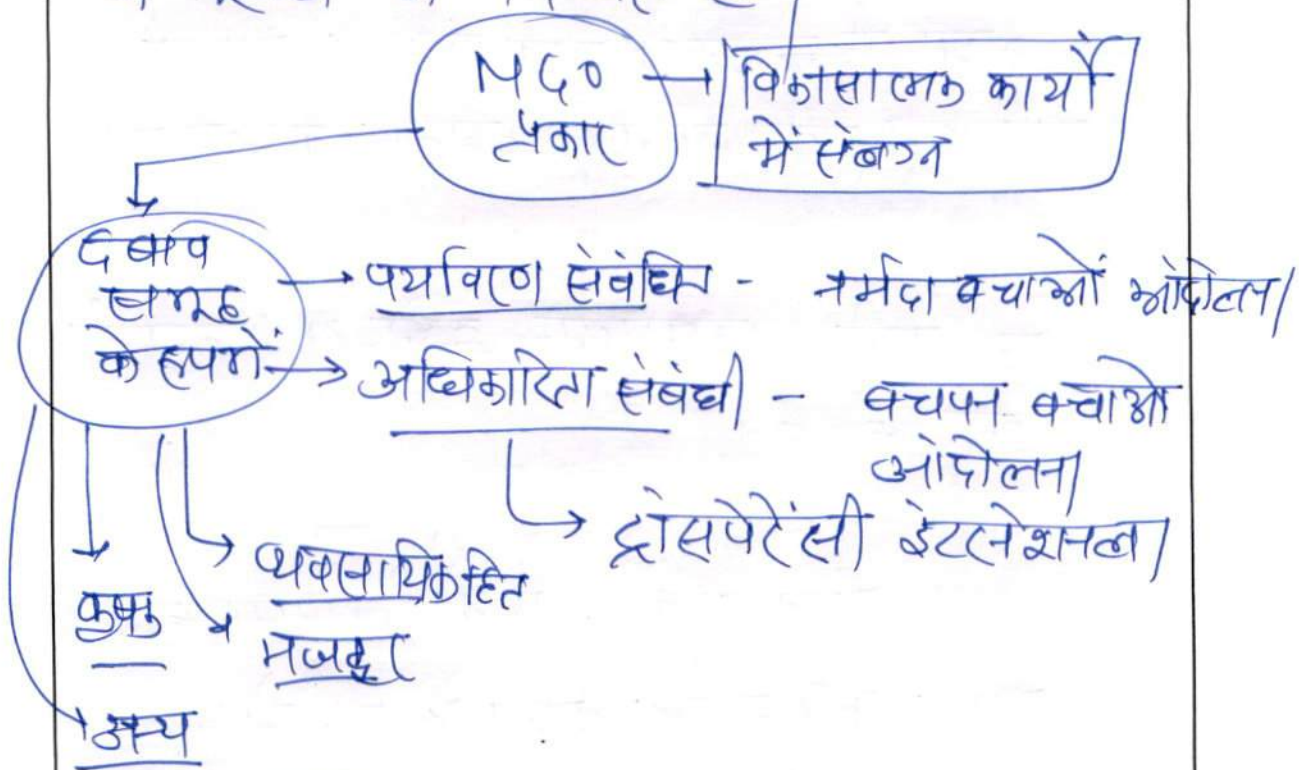 NGO
प्रकार
विकासात्मक कार्यों
में संलग्न
दबाव
समूह
के रूप में
पर्यावरण संबंधित - नर्मदा बचाओं आंदोलन।
अधिकारिता संबंधी - बचपन बचाओ
आंदोलन।
ट्रांसपेरेंसी इंटरनेशनल।
व्यवसायिक हित
कृषक
मजदूर
अन्य